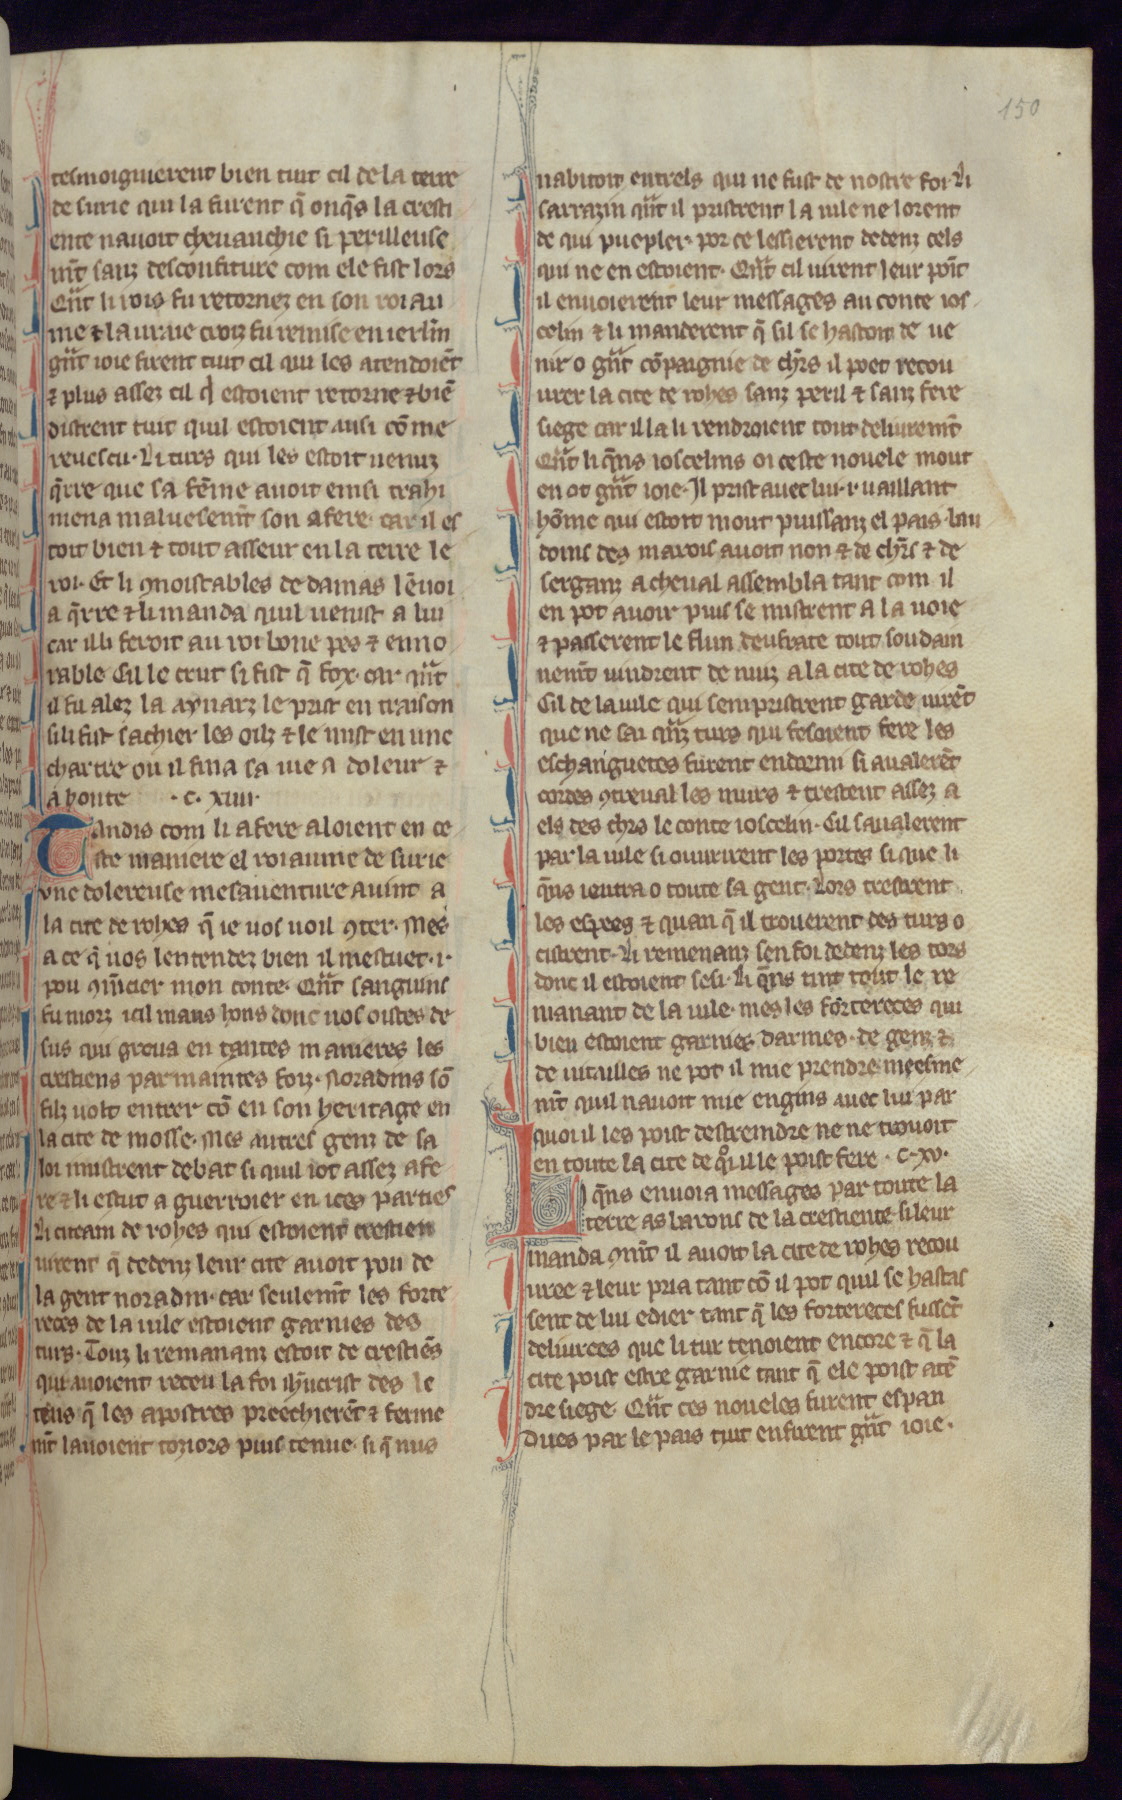 150
tesmoignierent bien tuit cil de la terre
de surie qui la furent q̄ onq̄s la cresti
ente nauoit cheuauchie si perilleuse
mt̄ sanz desconfiture com ele fist lors
Qn̄t li rois fu retornez en son roiau
me ⁊ la uraie croiz fu remise en ierlm̄
gn̄t ioie firent tuit cil qui les atendoiēt
⁊ plus assez cil qi estoient retorne ⁊ biē
distrent tuit quil estoient ausi cōme
reuescu. Li turs qui les estoit uenuz
q̄rre que sa fēme auoit einsi trahi
mena maluesemt̄ son afere. car il es
toit bien ⁊ tout asseur en la terre le
roi. Et li ꝯnoistables de damas lēuoi
a q̄rre ⁊ li manda quil uenist a lui
car il li feroit au roi bone pes ⁊ enno
rable. Cil le crut si fist q̄ fox. car qn̄t
il fu alez la aynarz le prist en traison
si li fist sachier les oilz ⁊ le mist en une
chartre ou il fina sa uie a doleur ⁊
a honte .c. xiiii.
Tandis com li afere aloient en ce
ste maniere el roiaume de surie
vne dolereuse mesauenture auint a
la cite de rohes q̄ ie uos uoil ꝯter. Mes
a ce q̄ uos lentendez bien il mestuet .i.
pou ꝯmēcier mon conte. Qn̄t sanguins
fu morz icil maus hons donc uos oistes de
sus qui greua en tantes manieres les
crestiens par maintes foiz. Noradins sō
filz uolt entrer cō en son heritage en
la cite de mosse. Mes autres genz de sa
loi mistrent debat si quil iot assez afe
re ⁊ li estut a guerroier en ices parties
Li citeain de rohes qui estoient crestien
uirent q̄ dedenz leur cite auoit pou de
la gent noradin. car seulemt̄ les forte
reces de la uile estoient garnies des
turs. Touz li remananz estoit de crestiēs
qui auoient receu la foi ih̄ucrist des le
tens q̄ les apostres preechierēt ⁊ ferme
mt̄ lauoient toziors puis tenue. si q̄ nus
nabitoit entrels qui ne fust de nostre foi. Li
sarrazin qn̄t il pristrent la uile ne lorent
de qui puepler. por ce lessierent dedenz cels
qui ne en estoient. Qn̄t cil uirent leur poīt
il enuoierent leur messages au conte ios
celin ⁊ li manderent q̄ sil se hastoit de ue
nir o gn̄t cōpaignie de chr̄s il poet recou
urer la cite de rohes sanz peril ⁊ sanz fere
siege car il la li rendroient tout deliuremt̄
Qn̄t li q̄ns ioscelins oi ceste nouele mout
en ot gn̄t ioie. Il prist auec lui .i. uaillant
hōme qui estoit mout puissanz el pais. bau
doins des marois auoit non ⁊ de chr̄s ⁊ de
serganz a cheual assembla tant com il
en pot auoir puis se mistrent a la uoie
⁊ passerent le flun deufrate tout soudain
nemt̄ uindrent de nuiz a la cite de rohes
Cil de la uile qui sempristrent garde uirēt
que ne sai qn̄z turs qui fesoient fere les
eschauguetes furent endormi si aualerēt
cordes ꝯtreual les murs ⁊ trestent assez a
els des chr̄s le conte ioscelin. Cil saualerent
par la uile si ouurirent les portes si que li
q̄ns ientra o toute sa gent. Lors trestrent
les espees ⁊ quan q̄ il trouerent des turs o
cistrent. Li remenanz sen foi dedenz les tors
donc il estoient sesi. Li q̄ns tint tout le re
manant de la uile. mes les fortereces qui
bien estoient garnies darmes. de genz ⁊
de uitailles ne pot il mie prendre meesme
mt̄ quil nauoit mie engins auec lui par
quoi il les poist destreindre ne ne trouoit
en toute la cite de qoi il le poist fere .c. xv.
Li q̄ns enuoia messages par toute la
terre as barons de la crestiente. si leur
manda ꝯmt̄ il auoit la cite de rohes recou
uree ⁊ leur pria tant cō il pot quil se hastas
sent de lui edier tant q̄ les fortereces fussēt
deliurees que li tur tenoient encore ⁊ q̄ la
cite poist estre garnie tant q̄ ele poist atē
dre siege. Qn̄t ces noueles furent espan
dues par le pais tuit enfirent gn̄t ioie.